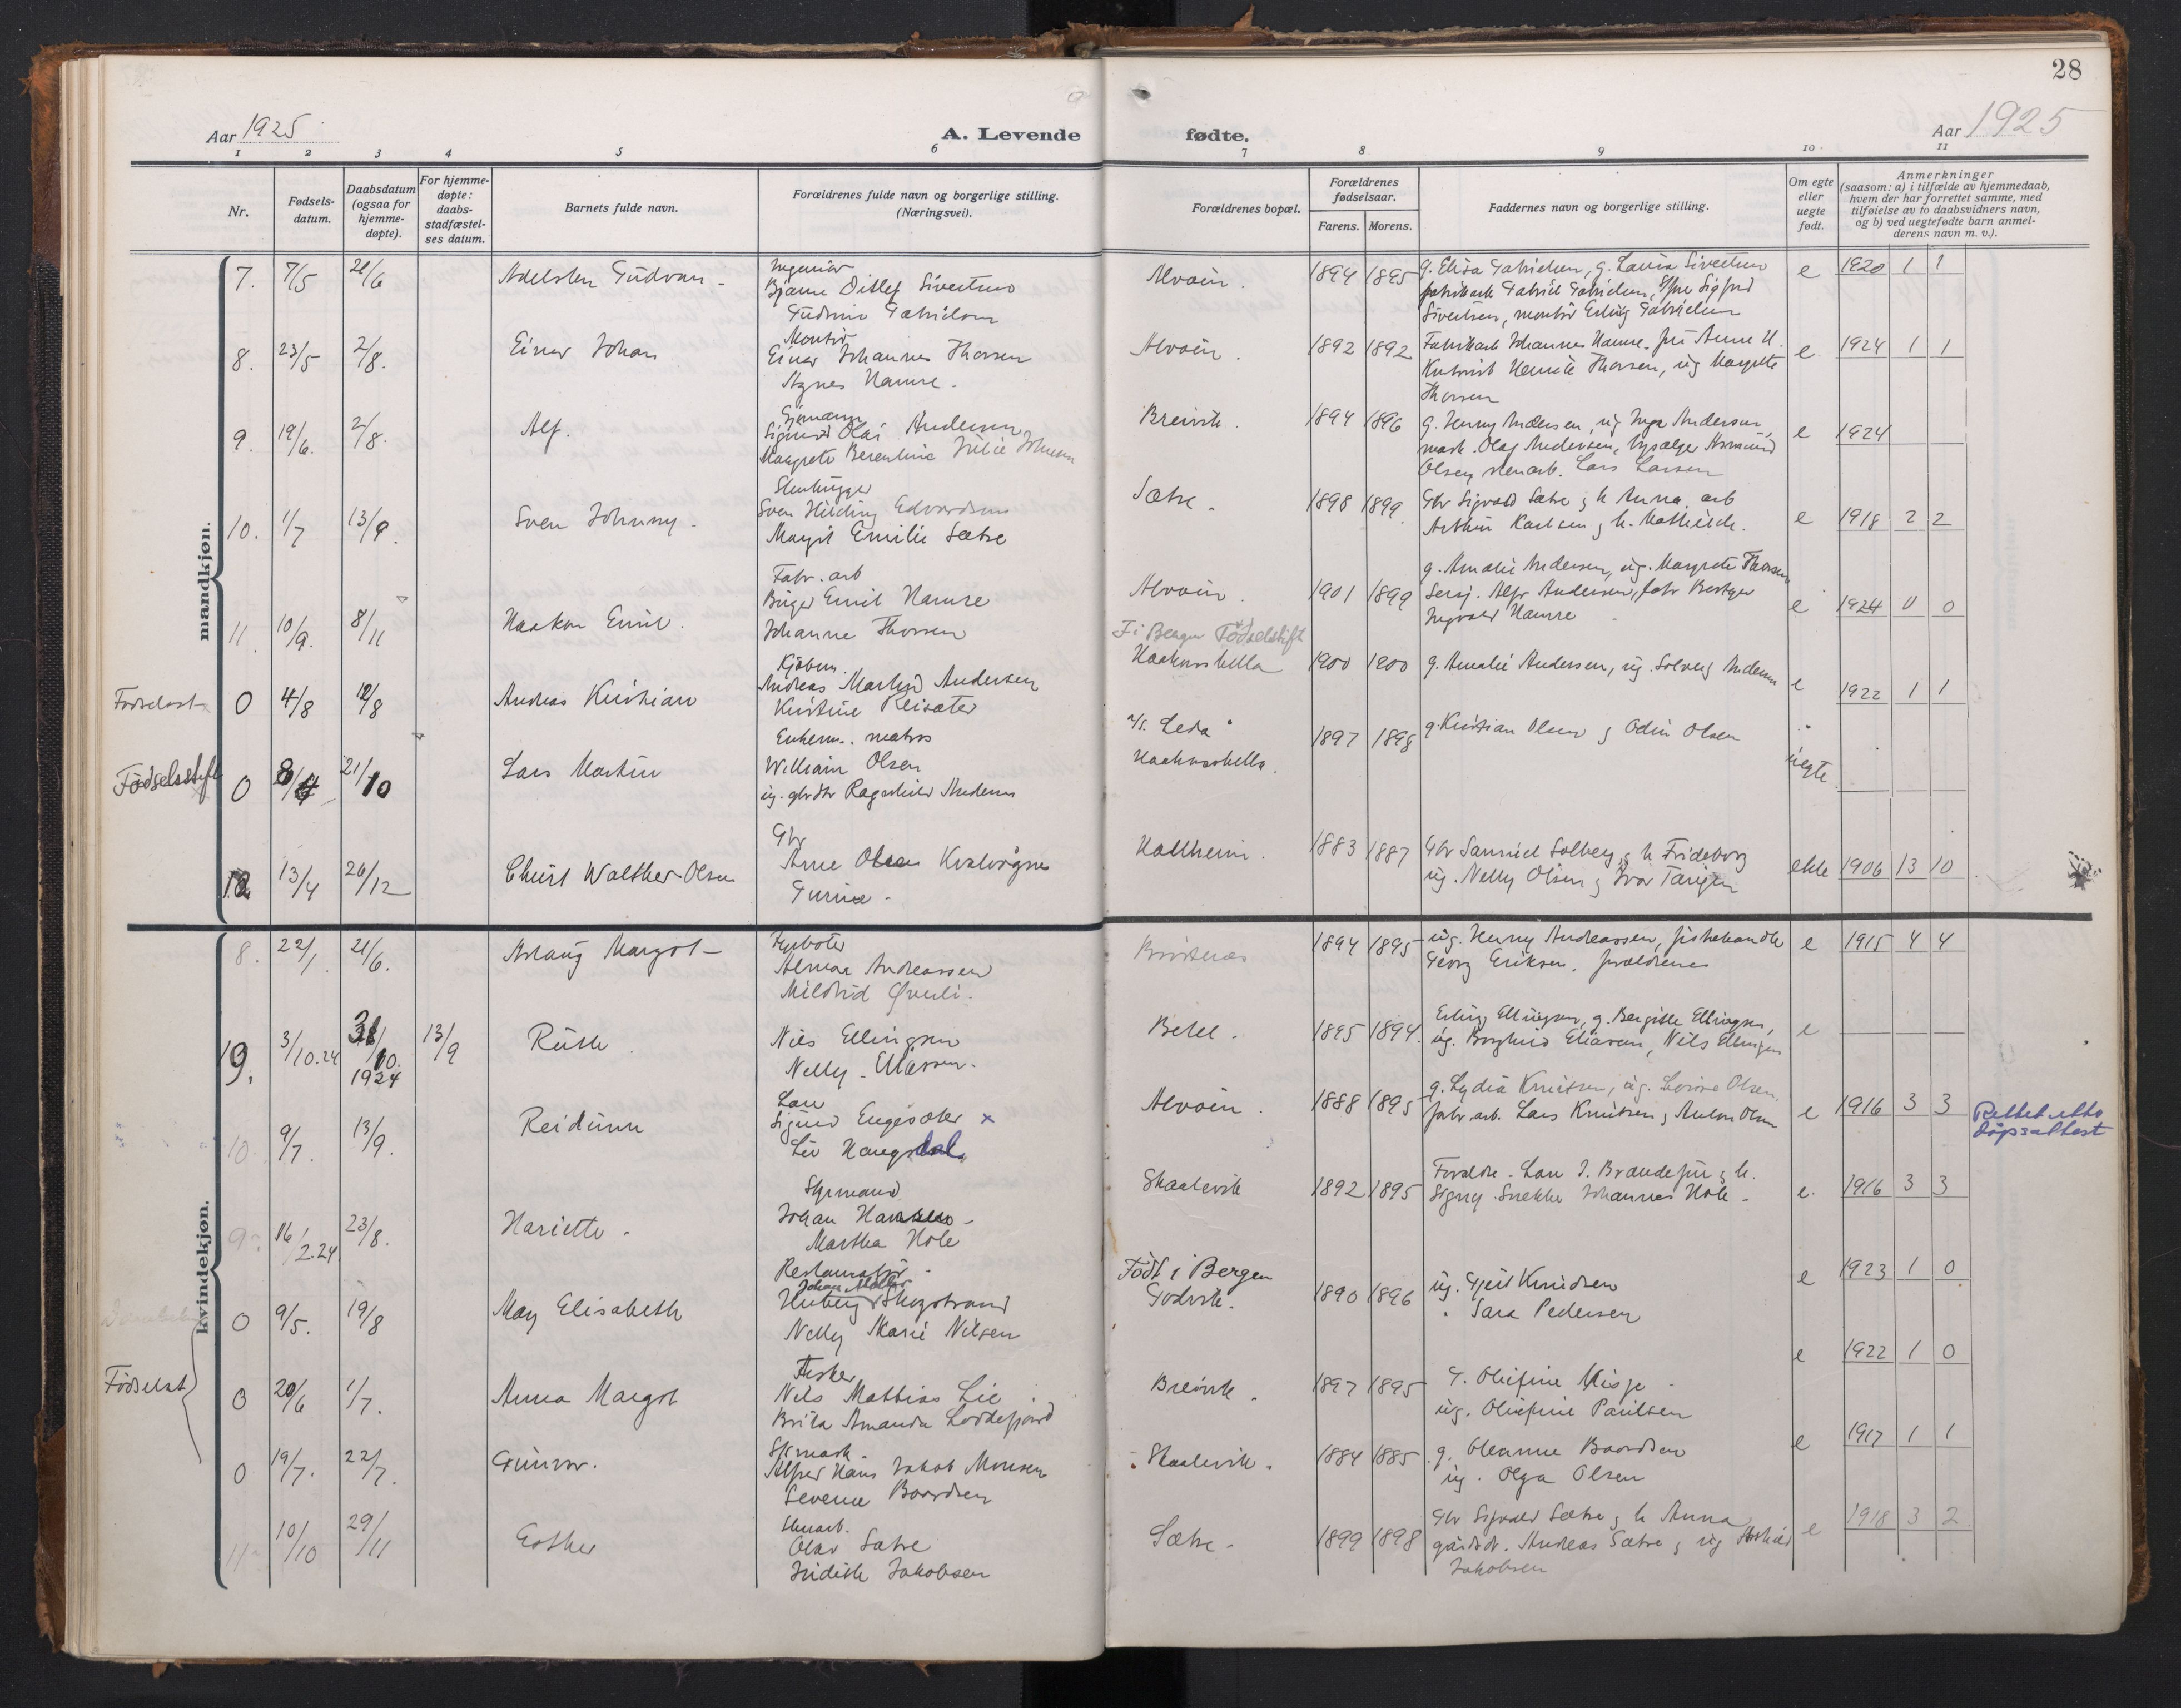 28
Aar 1925
A. Levende
fødte.
Aar 1925
1 2 3 4 5 6 7 8 9 10 11
Nr.
Fødsels-
datum.
Daabsdatum
(ogsaa for
hjemme-
døpte).
For hjemme-
døpte:
daabs-
stadfæstel-
ses datum.
Barnets fulde navn.
Forældrenes fulde navn og borgerlige stilling.
(Næringsvei).
Forældrenes bopæl.
Forældrenes
fødselsaar.
Farens. Morens.
Faddernes navn og borgerlige stilling.
Om egte
eller
uegte
født.
Anmerkninger
(saasom: a) i tilfælde av hjemmedaab,
hvem der har forrettet samme, med
tilføielse av to daabsvidners navn,
og b) ved uegtefødte barn anmel-
derens navn m. v.).
mandkjøn.
7. 7/5 21/6 Adelsten Gudvan -
Ingeniør
Bjarne Ditlef Sivertsen
Alvøen. 1894 1895
g. Elisa Gabrielsen, g. Laura Sivertsen
fabrikarb Gabriel Gabrielsen, Sigfred
Sivertsen, montør Erling Gabrielsen
e 1920 1 1
8. 23/5 2/8. Einar Johan
Montør
Einar Johannes Thorsen
Agnes Hamre.
Alvøen. 1892 1892
Fabrikarb Johannes Hamre, fru Anne H.
Thorsen, ug Margrethe
Thorsen
e 1924 1 1
9. 19/6. 2/8. Alf.
Sjømann
Sigurd Olai Andersen
Margrete Berentine Julie Johnsen
Breivik. 1894 1896
g. Henny Andersen, ug Inga Andersen,
mask. Olaf Andersen,
Olsen, stenarb. Lars Larsen
e 1924
10. 1/7 13/9. Sven Johnny.
Stenhugger
Sven Hilding Edvardsen
Margit Emilie Sætre
Sætre. 1898 1899
Gbr Sigvald Sætre & h Anna, arb
Arthur Karlsen & h. Mathilde.
e 1918 2 2
11. 10/9. 8/11 Haakon Emil.
Fabr. arb
Birger Emil Hamre
Johanne Thorsen
Alvøen. 1901 1899
g. Amalie Andersen, ug. Margrete Thorsen
Serg. Alfr Andersen, fabr
Ingvald Hamre
e 1924 0 0
Fødselsst 0 4/8 12/8 Andreas Kristian
Andreas Martin Andersen
Kristine Reisæter
F i Bergen Fødselstift
Haakonshella 1900 1900
g. Amalie Andersen, ug. Solveig Andersen
e 1922 1 1
Fødselsstift 0 21/10 Lars Martin
Enkem. matros
William Olsen
ug. gbrdtr Ragnhild Andersen
"Leda"
Haakonshella. 1897 1898
g. Kristian Olsen & Odin Olsen
uegte
12. 13/4 26/12 Christ Walther Olsen
Gbr
Arne Olsen Kvalvågnes
Turine -
Hallheim. 1883 1887
Gbr Samuel Solberg & h Frideborg
ug. Nelly Olsen & Ivar Tarigen
ekte 1906 13 10
kvindekjøn.
8. 22/1. 21/6. Aslaug Margot -
Fyrbøter
Almar Andreassen
Mildrid Øverli.
1894 1895
ug. Henny Andreassen, fiskehandler
Georg Eriksen, forældrene
e 1915 4 4
9. 3/10.24 31/10. 1924 13/9 Ruth.
Nils Ellingsen
Nelly Eliassen.
1895 1894.
Erling Ellingsen, g. Bergitte Ellingsen,
ug. Borghild Eliassen, Nils Ellingsen
e
10. 9/7. 13/9. Reidunn
Sigurd Engesæter x
Liv Haugsdal.
Alvøen. 1888 1895
g. Lydia Knutsen, ug. Lovise Olsen,
fabr. arb. Lars Knutsen & Anton Olsen
e 1916 3 3
Rettet etter
dåpsattest
9. 16/2.24 23/8. Hariette.
Styrmand
Johan
Martha Hole
Skaalevik 1892 1895
Foreldre. J. Brandefur & h.
Signy. Snekker Johannes Hole -
e. 1916 3 3
0 9/5. 19/8 May Elisabeth
Restauratør
Johan Møller
Skogstrand
Nelly Marie Nilsen
Født i Bergen
Godvik. 1890 1896
ug. Gjert Knudsen
" Sara Pedersen
e 1923 1 0
Fødselst 0 20/6 1/7. Anna Margot
Fisker
Nils Mathias Lie
Brita Amanda Loddefjord
Breivik. 1897 1895
G. Olufine Misje
ug. Olufine Paulsen
e 1922 1 0
0 19/7. 22/7. Gunvor.
Alfred Hans Jakob Monsen
Severine Baardsen
Skaalevik. 1884 1885
g. Oleanne Baardsen
ug. Olga Olsen
e 1917 1 1
11 10/10 29/11 Esther
Stenarb.
Olav Sætre
Judith Jakobsen
Sætre. 1899 1898
Gbr Sigvald Sætre & h Anna
gårdsdr. Andreas Sætre & ug
Jakobsen
e 1918 3 2